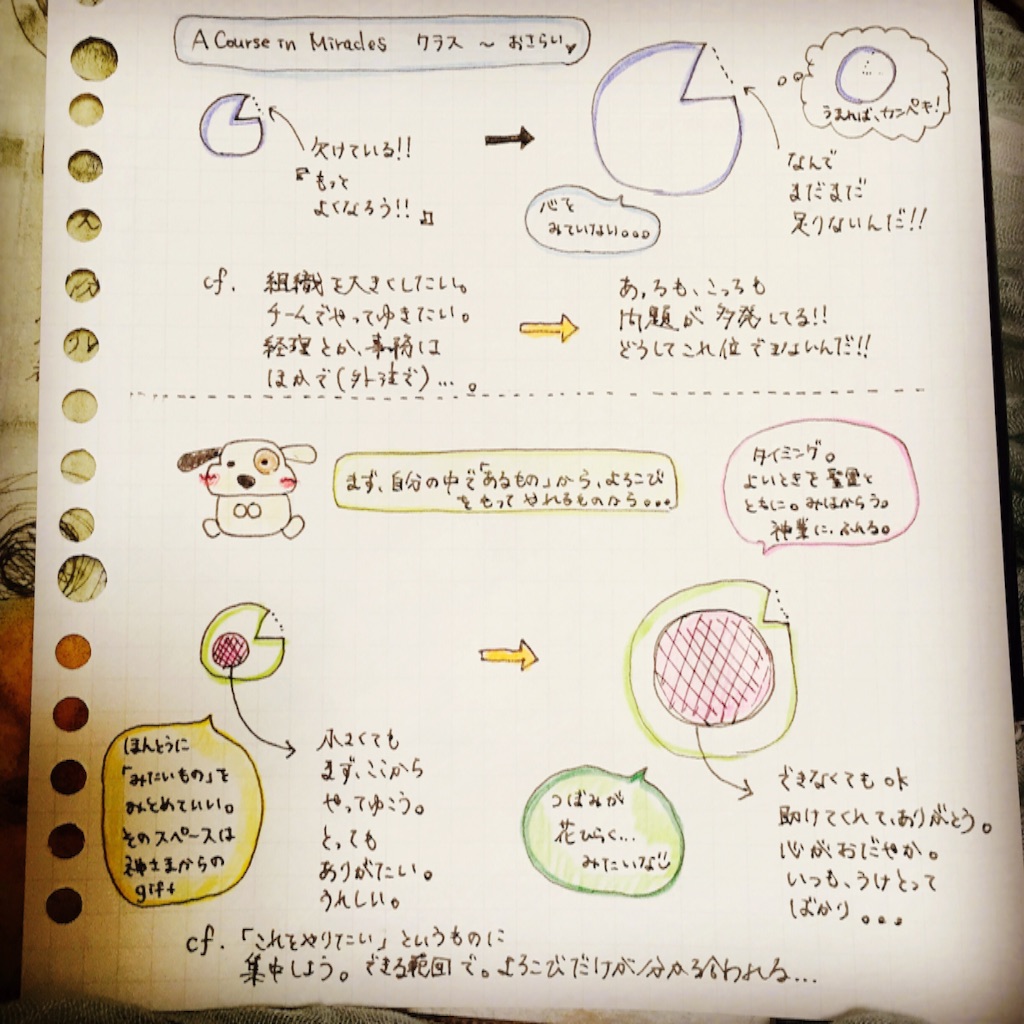 A Course in Miracles クラス ～ おさらい
欠けている!!
『もっと
よくなろう!!』
心を
みていない。。。
なんで
まだまだ
足りないんだ!!
うまれば、カンペキ!
cf. 組織を大きくしたい。
チームでやってゆきたい。
経理とか、事務は
ほかで(外注で)…。
あっちも、こっちも
問題が多発してる!!
どうしてこれ位できないんだ!!
まず、自分の中で「あるもの」から、よろこび
をもってやれるものから。。。
タイミング。
よいときを聖霊と
ともに。みはからう。
神業に、ふれる。
ほんとうに
「みたいもの」を
みとめていい。
そのスペースは
神さまからの
gift
小さくても
まず、ここから
やってゆこう。
とっても
ありがたい。
うれしい。
つぼみが
花ひらく…
みたいな
できなくてもok
助けてくれて、ありがとう。
心がおだやか。
いつも、うけとって
ばかり。。。
cf. 「これをやりたい」というものに
集中しよう。できる範囲で。よろこびだけが分かち合われる…